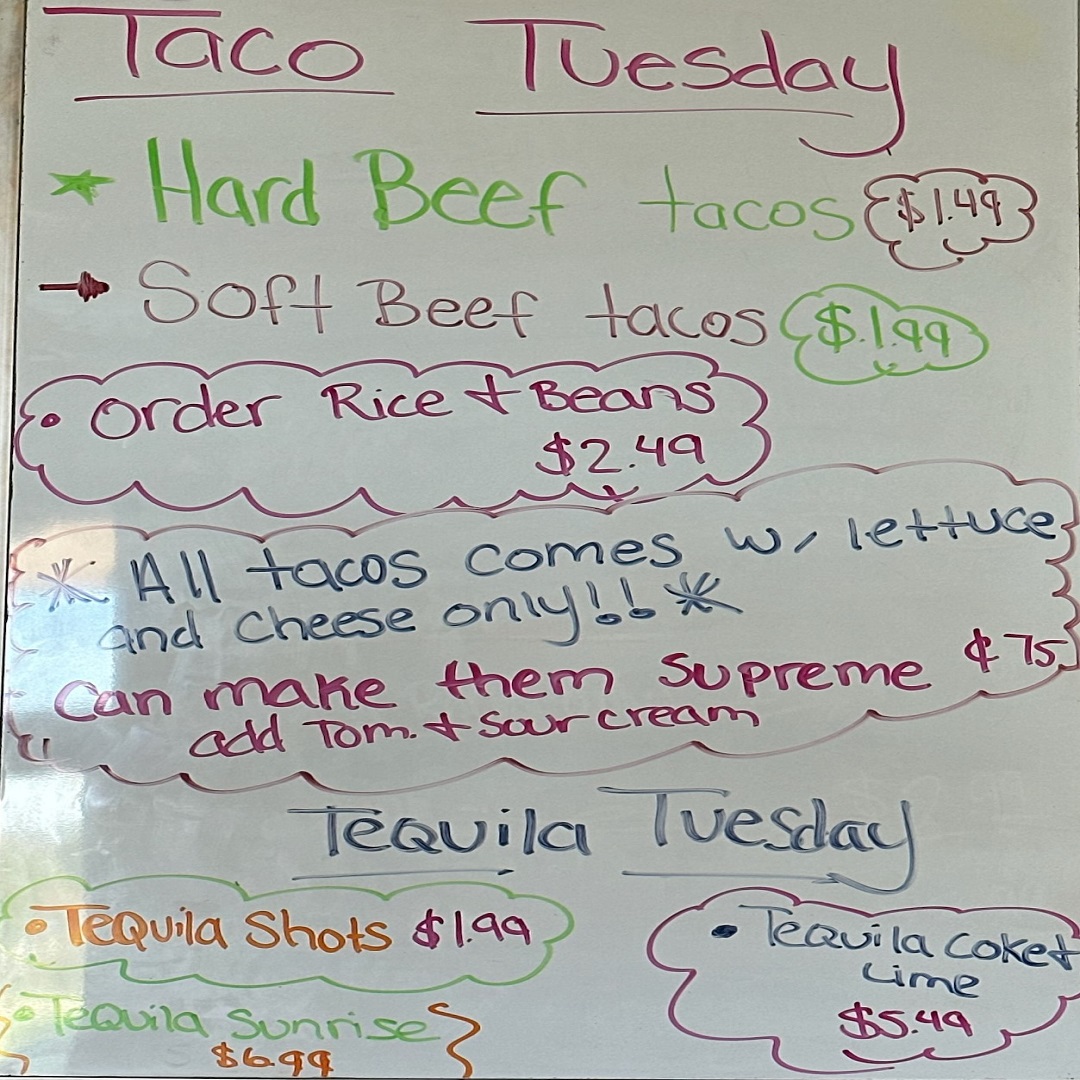 Taco Tuesday
Hard Beef tacos $1.49
Soft Beef tacos $.1.99
• Order Rice & Beans
$2.49
All tacos comes w/ lettuce
and cheese only!!
Can make them Supreme ¢ 75
add Tom. & Sour cream
Tequila Tuesday
• Tequila Shots $1.99
• Tequila Coke &
Lime
$5.49
• Tequila Sunrise
$6.99